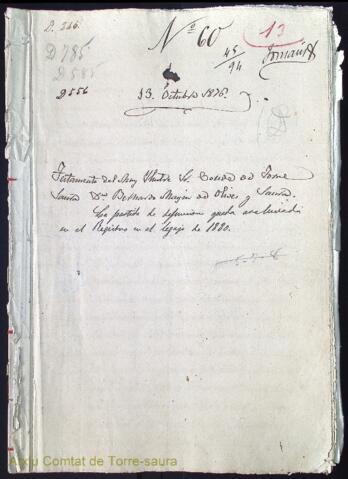 P. 346.
Nº 60
13
D 785
45/94
D 585
D 556
13. Octubre 1876.
Testamento del Muy Iltre Sr. Conde de Torre
Saura Dn. Bernardo Magin de Olives y Saura
La partida de defuncion queda
en el Registro en el legajo de 1820.
Arxiu Comtat de Torre-saura